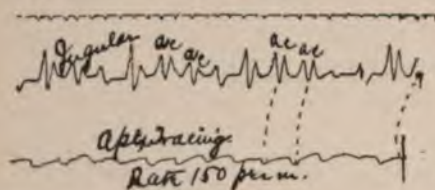 Jugular ac ac ac ac
Apex tracing
Rate 150 per m.